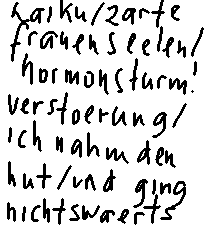 haiku/zarte
frauenseelen/
hormonsturm!
verstoerung/
ich nahm den
hut/und ging
nichtswaerts